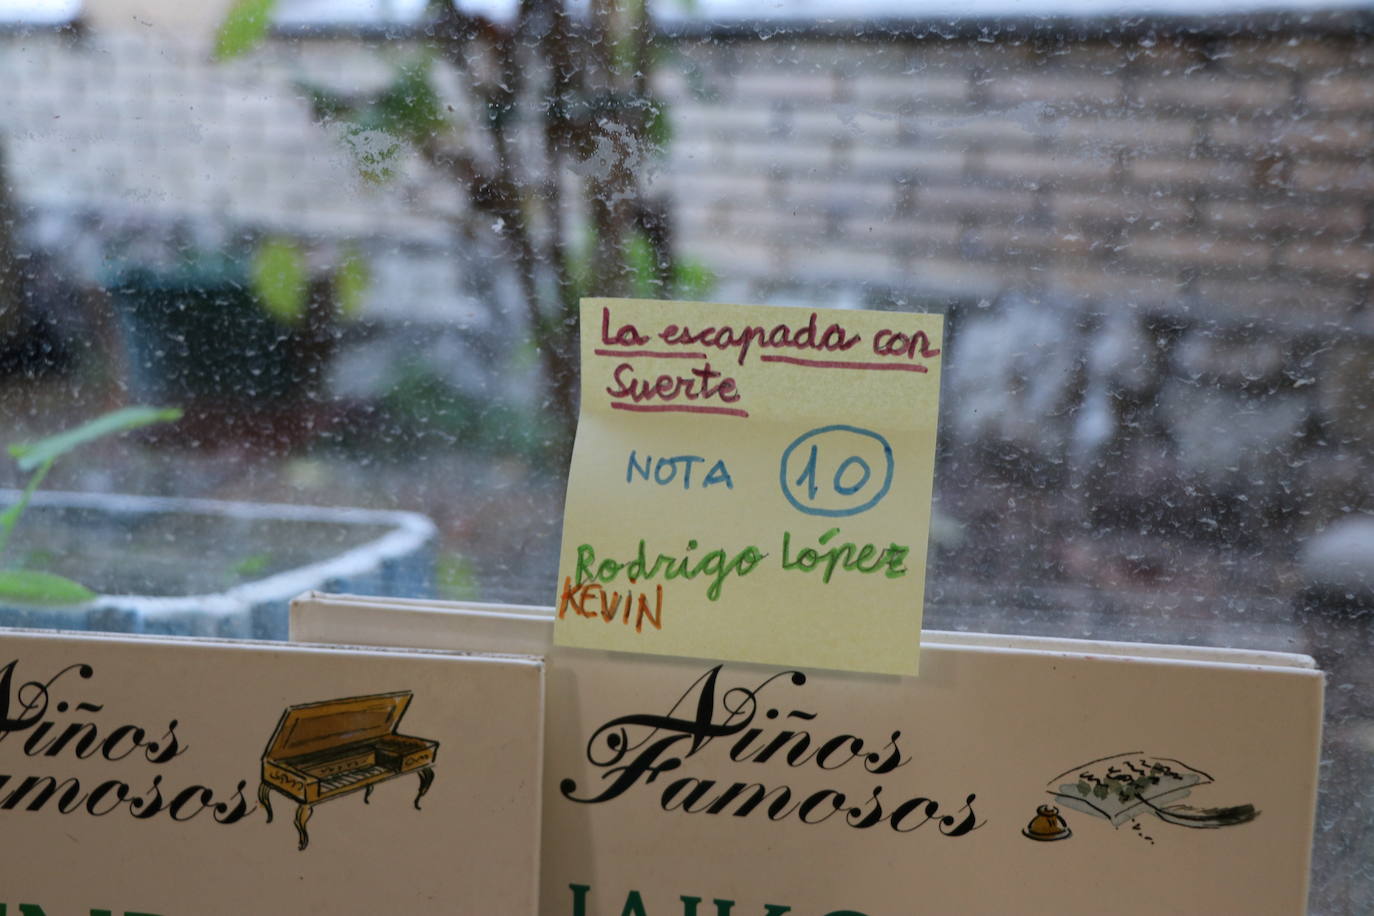 La escapada con
Suerte
NOTA 10
Rodrigo López
KEVIN
Niños
Famosos
Niños
Famosos